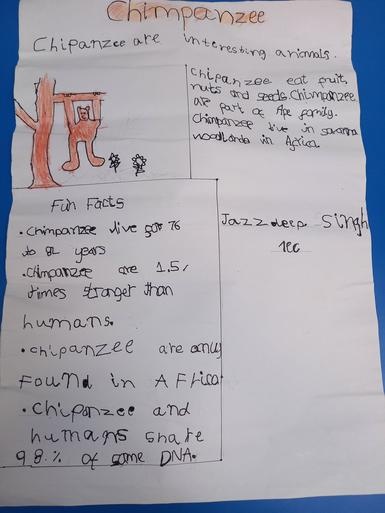 Chimpanzee
Chipanzee are interesting animals.
Chipanzee eat fruit,
nuts and seeds. Chimpanzee
are part of Ape family.
Chimpanzee live in savanna
woodlands in Africa.
Fun Facts
• Chimpanzee live for 76
to 82 years
• Chimpanzee are 1.5,
times stronger than
humans.
• Chipanzee are only
Found in AFrica
• Chipanzee and
humans share
98.% of same DNA.
Jazzdeep Singh